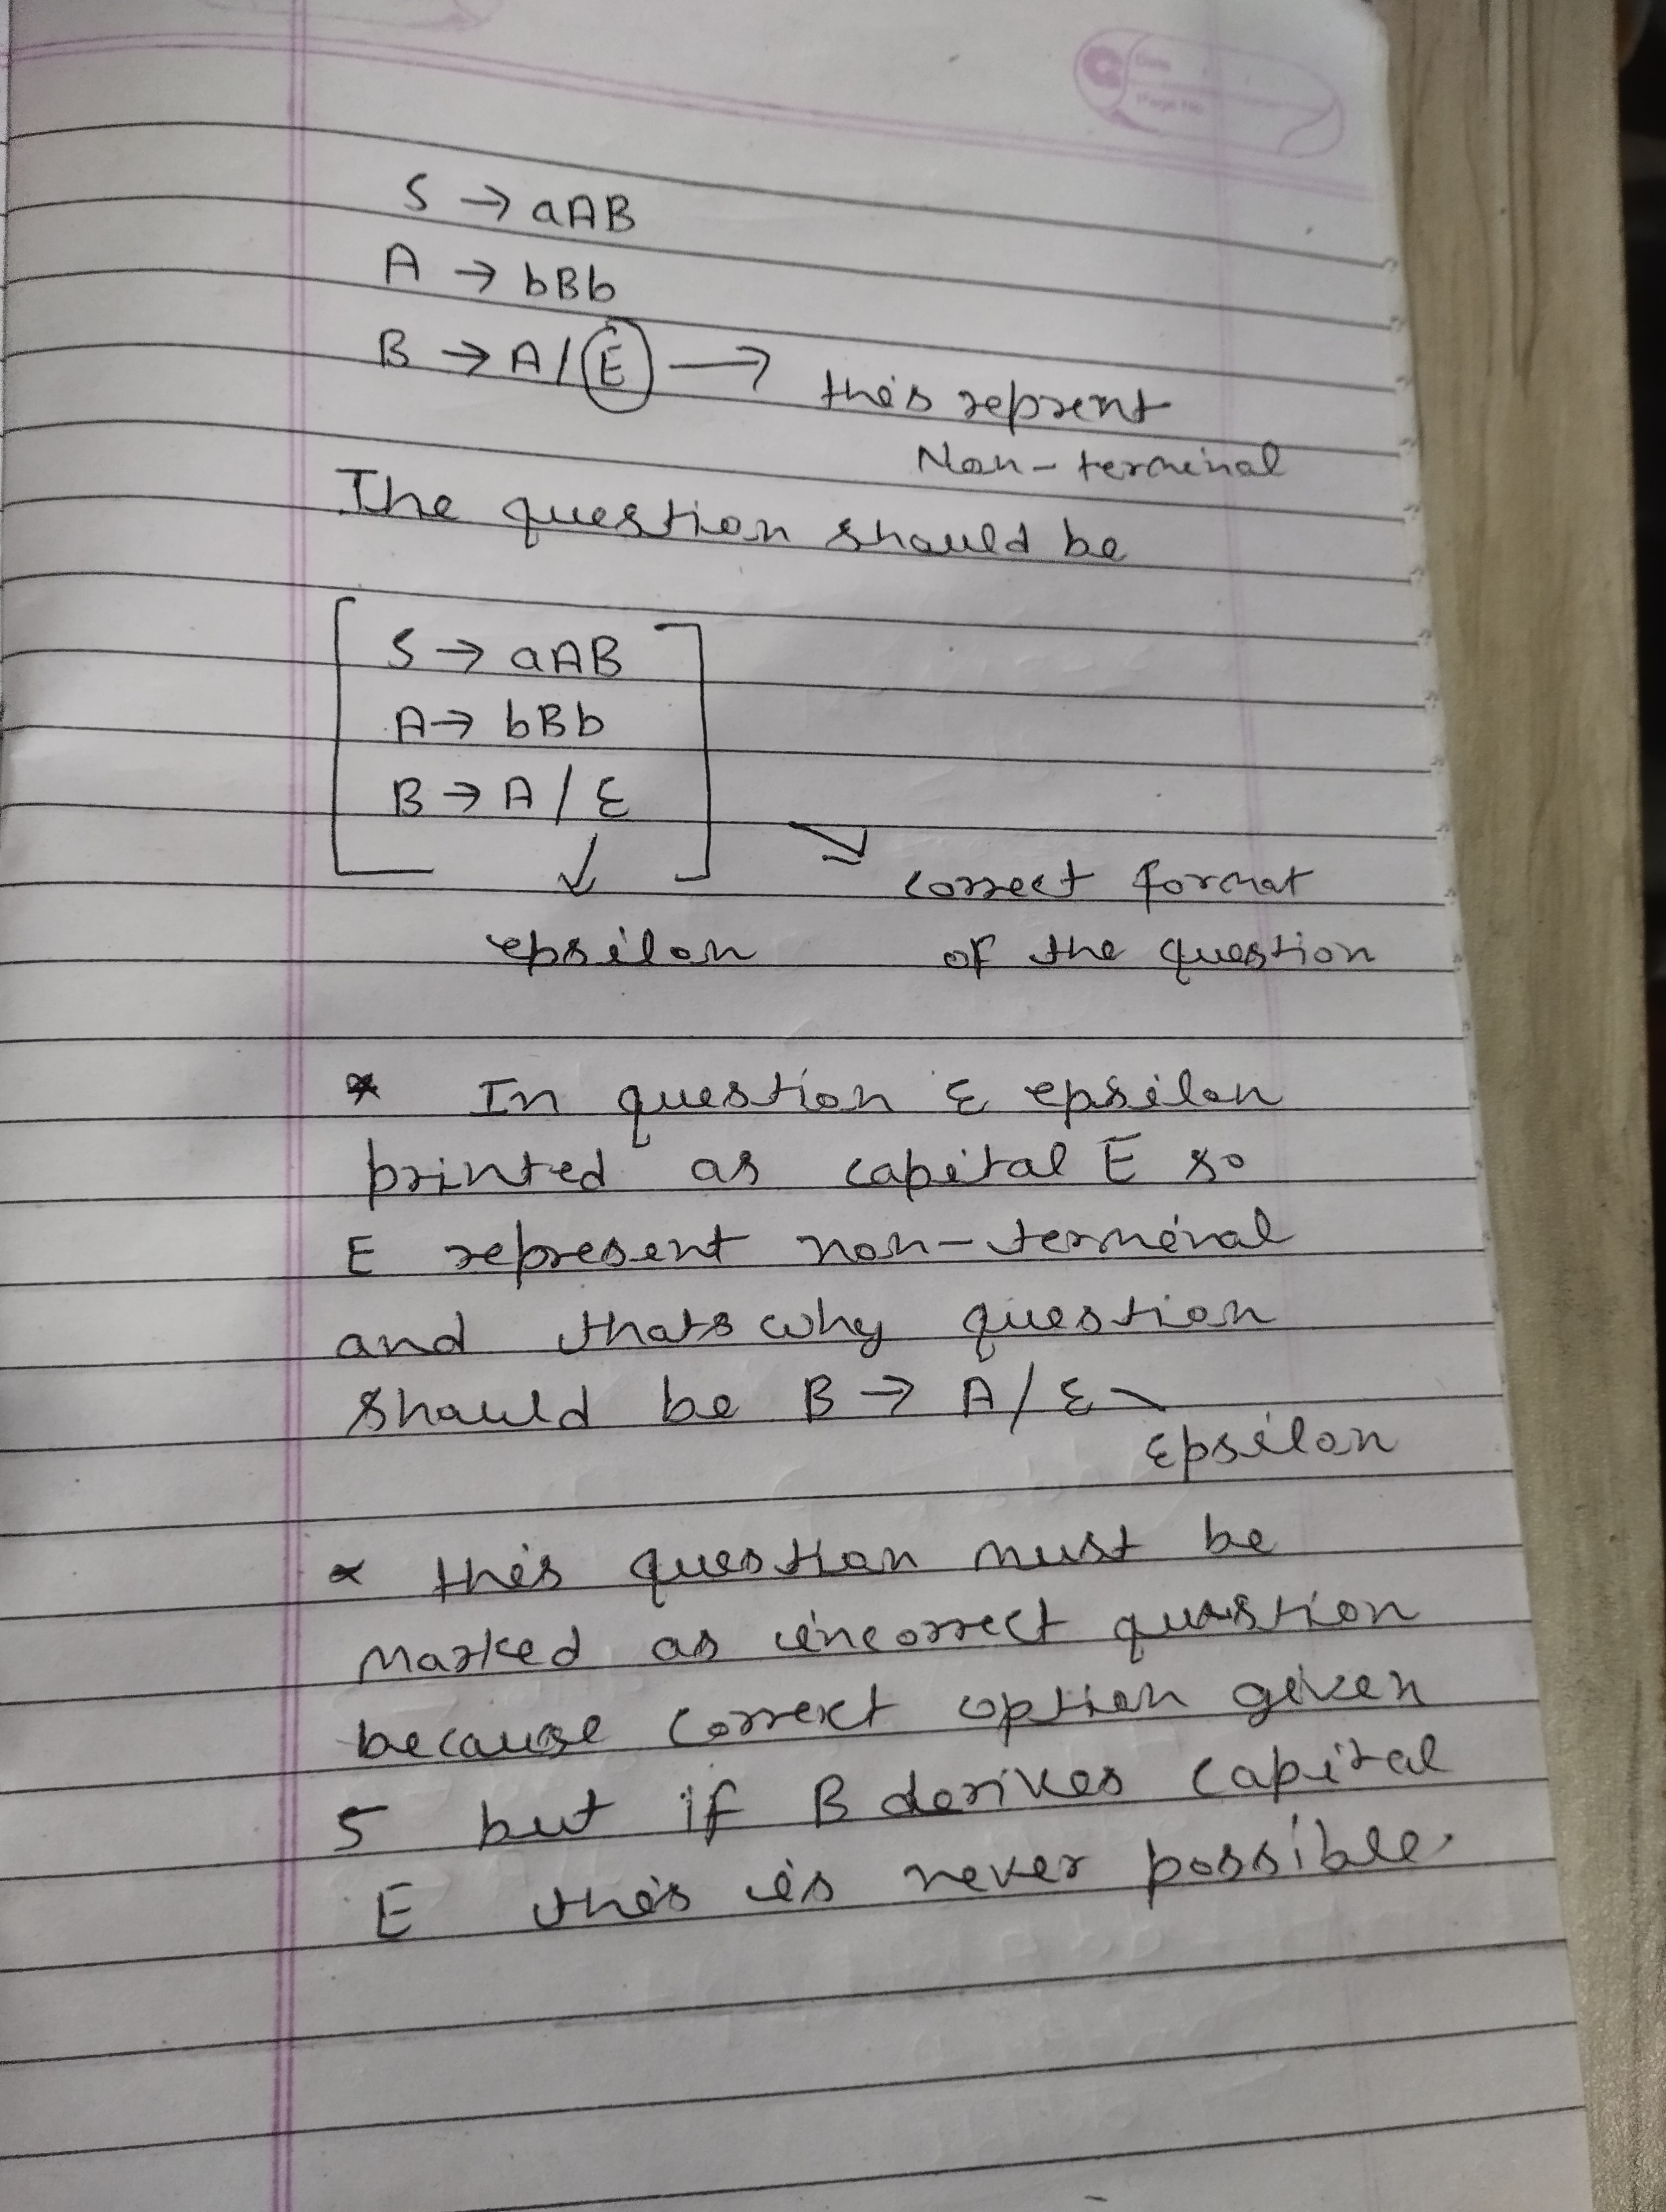 Date
Page No.
S → aAB
A → bBb
B → A / E → this reprent
Non-terminal
The question should be
S → aAB
A → bBb
B → A / ε
correct format
epsilon of the question
* In question ε epsilon
printed as capital E so
E represent non-terminal
and thats why question
should be B → A / ε
Epsilon
* this question must be
marked as incorrect question
because correct option given
5 but if B derives capital
E this is never possible.